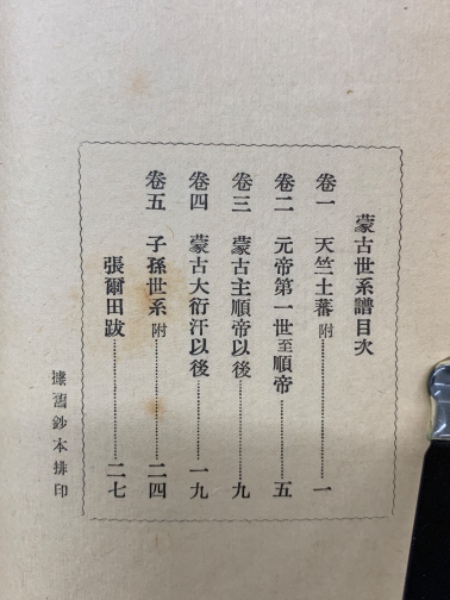 蒙古世系譜目次
卷一 天竺土蕃附………一
卷二 元帝第一世至順帝………五
卷三 蒙古主順帝以後………九
卷四 蒙古大衍汗以後………一九
卷五 子孫世系附………二四
張爾田跋………二七
據舊鈔本排印